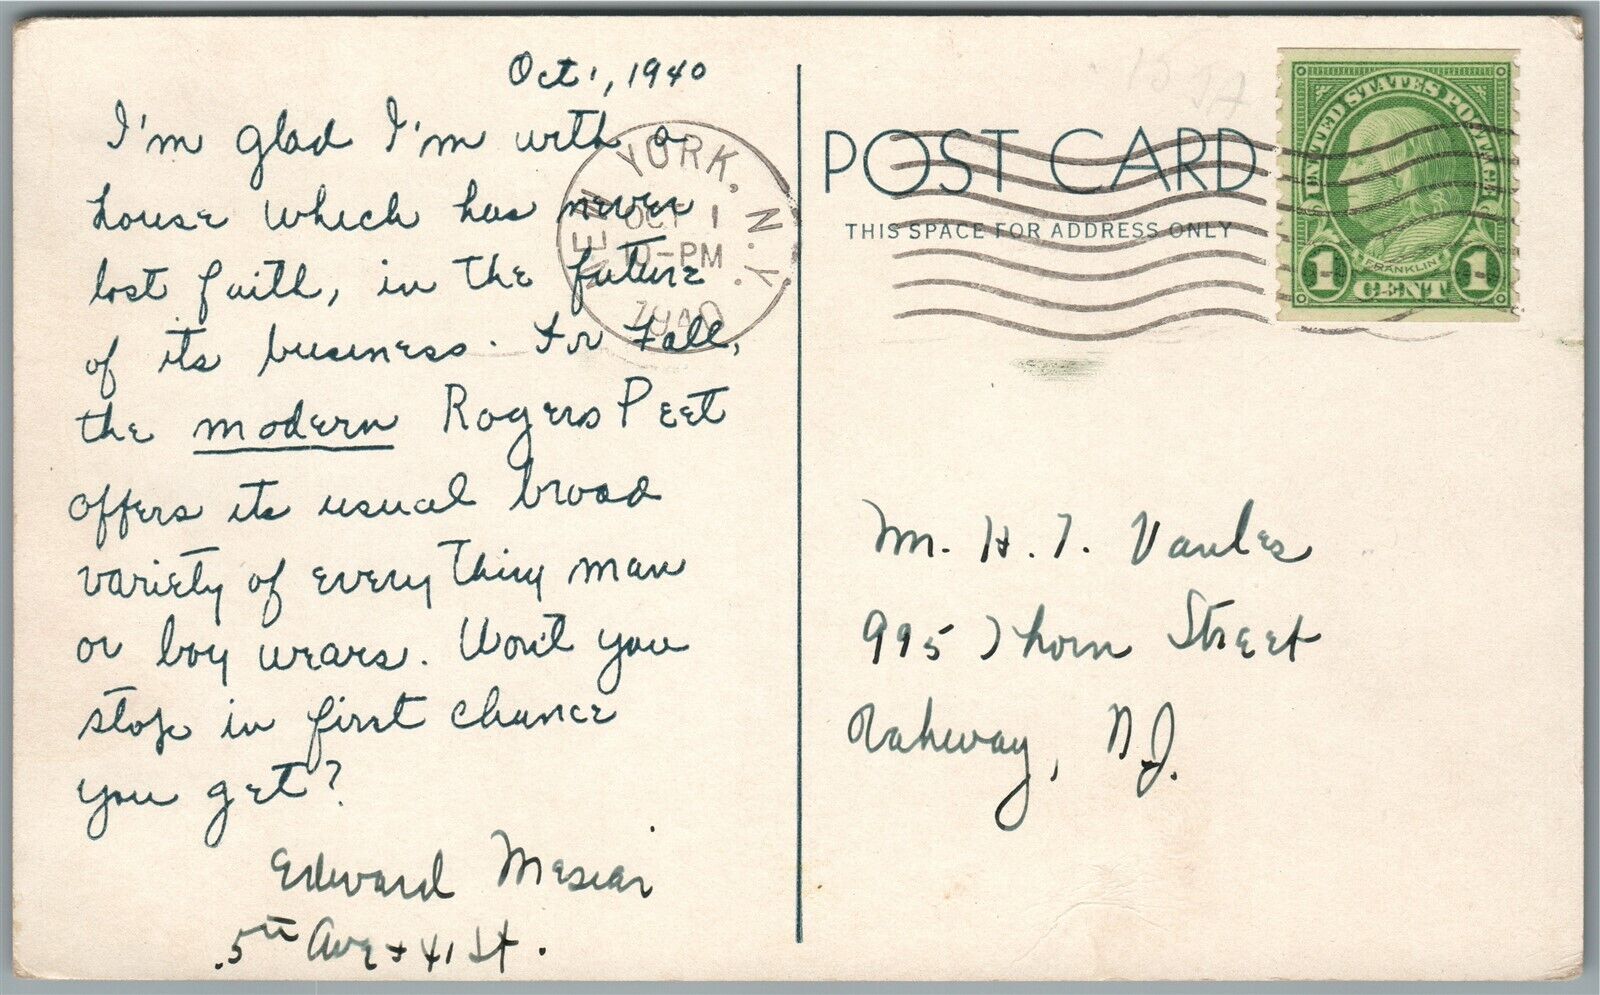 Oct 1, 1940
I'm glad I'm with a
house which has never
lost faith, in the future
of its business. For Fall,
the modern Rogers Peet
offers its usual broad
variety of everything man
or boy wears. Won't you
stop in first chance
you get?
Edward Mesiar
5th Ave & 41 St.
NEW YORK, N.Y.
OCT 1
10-PM
1940
POST CARD
THIS SPACE FOR ADDRESS ONLY
UNITED STATES POSTAGE
FRANKLIN
1 CENT 1
Mr. H. T.
995 Thorn Street
Rahway, N.J.